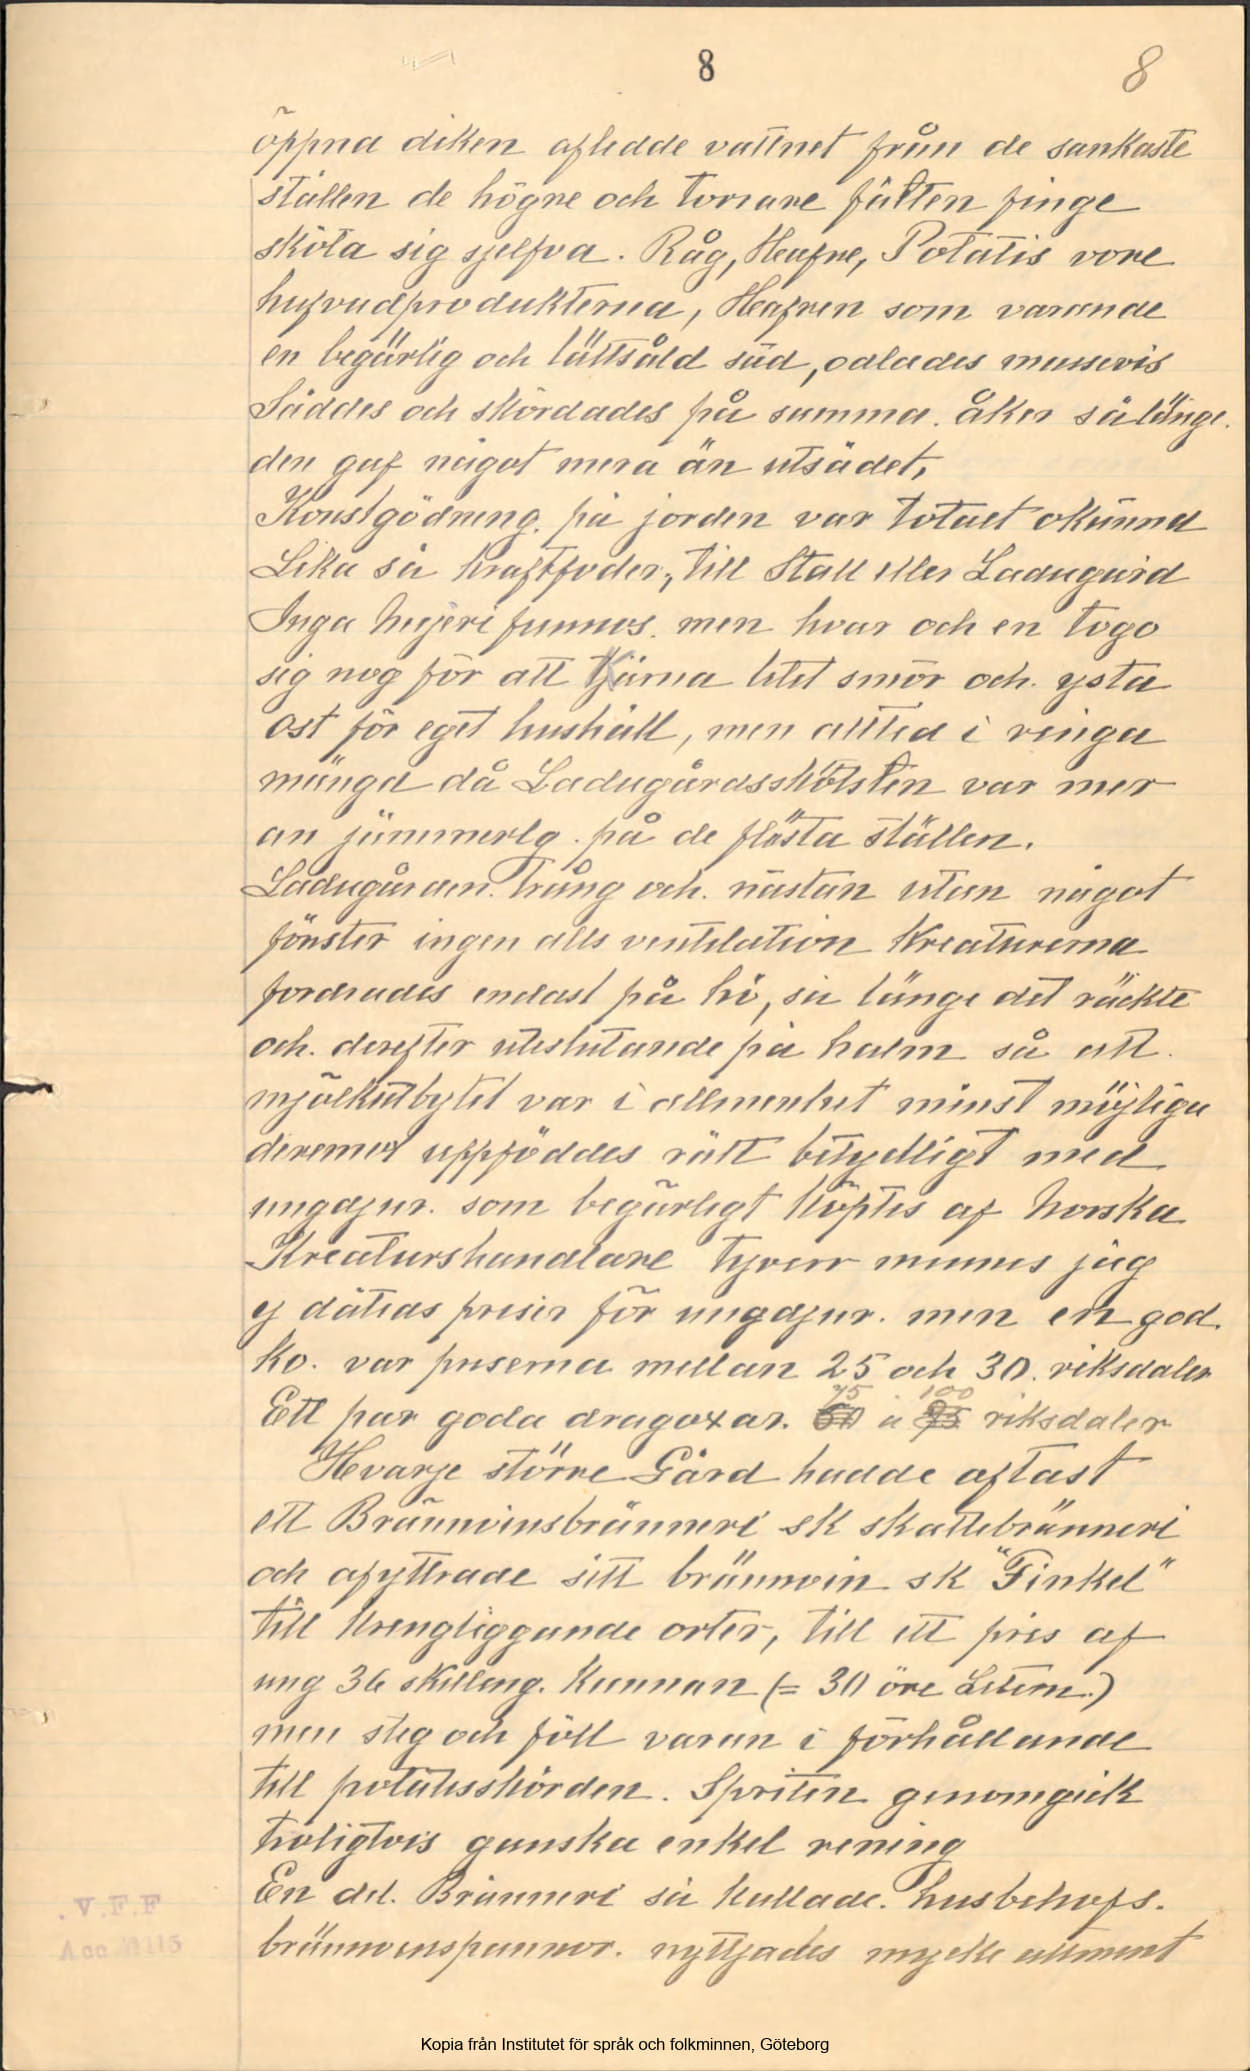 8
8
öppna diken afledde vattnet från de sankaste
ställen de högre och torrare fälten finge
sköta sig sjelfva. Råg, Hafre, Potatis vore
hufvudprodukterna, Hafren som varande
en begärlig och lättsåld säd, odlades massevis
Såddes och skördades på samma. åker så länge.
den gaf något mera än utsädet,
Konstgödning. på jorden var totalt okännd
Lika så kraftfoder, till Stall eller Ladugård
Inga mejeri funnos. men hvar och en togo
sig nog för att kjärna litet smör och. ysta
ost för eget hushåll, men alltid i ringa
mängd då Ladugårdsskötsten var mer
än jämmerlg. på de flästa ställen.
Ladugården. trång och. nästan utan något
fönster ingen alls ventilation Kreaturerna
fordrades endast på hö, så länge det räckte
och. derefter uteslutande på halm så att.
mjölkutbytet var i allmenhet minst möjliga
deremot uppföddes rätt betydligt med
ungdjur. som begärligt köptes af Norska
Kreaturshandlare tyverr minnes jag
ej dåtidas priser för ungdjur. men en god.
ko. var priserna mellan 25 och 30. riksdaler
75 100
Ett par goda dragoxar. 60 a 95 riksdaler
Hvarje större Gård hadde oftast
ett Brännvinsbränneri sk skattebränneri
och afyttrade sitt brännvin sk "Finkel"
till kringliggande orter, till ett pris af
ung 36 skilling. Kannan (= 30 öre Litern.)
men steg och föll varan i förhållande
till potatisskörden. Spriten genomgick
troligtvis ganska enkel rening
En del. Bränneri så kallade. husbehofs.
brännvinspannor. nyttjades mycke allment
V.F.F
Acc
Kopia från Institutet för språk och folkminnen, Göteborg